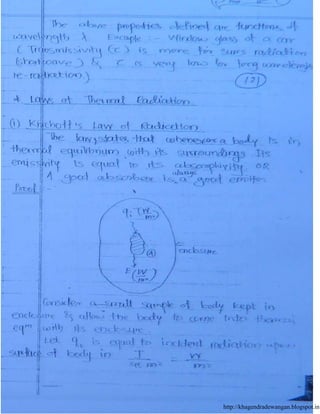 The above properties defined are functions of
wavelength λ. Example :- Window glass of a car
( Transmissivity (τ) is more for suns radiation
(shortwave) & τ is very low for long wavelength
re-radiation)
(2)
* Laws of Thermal Radiation.
(1) Kirchoff's Law of Radiation
The law states that whenever a body is in
thermal equilibrium with its surroundings Its
emissivity is equal to its absorptivity. OR
A good absorber is always a good emitter.
Proof :-
W
m²
enclosure
E (W
m²)
Consider a small sample of body kept in
enclosure & allow the body to come into thermal
eqm with its enclosure.
Let qi is equal to incident radiation upon
surface of body in J = W
sec m² m²
http://khagendradewangan.blogspot.in